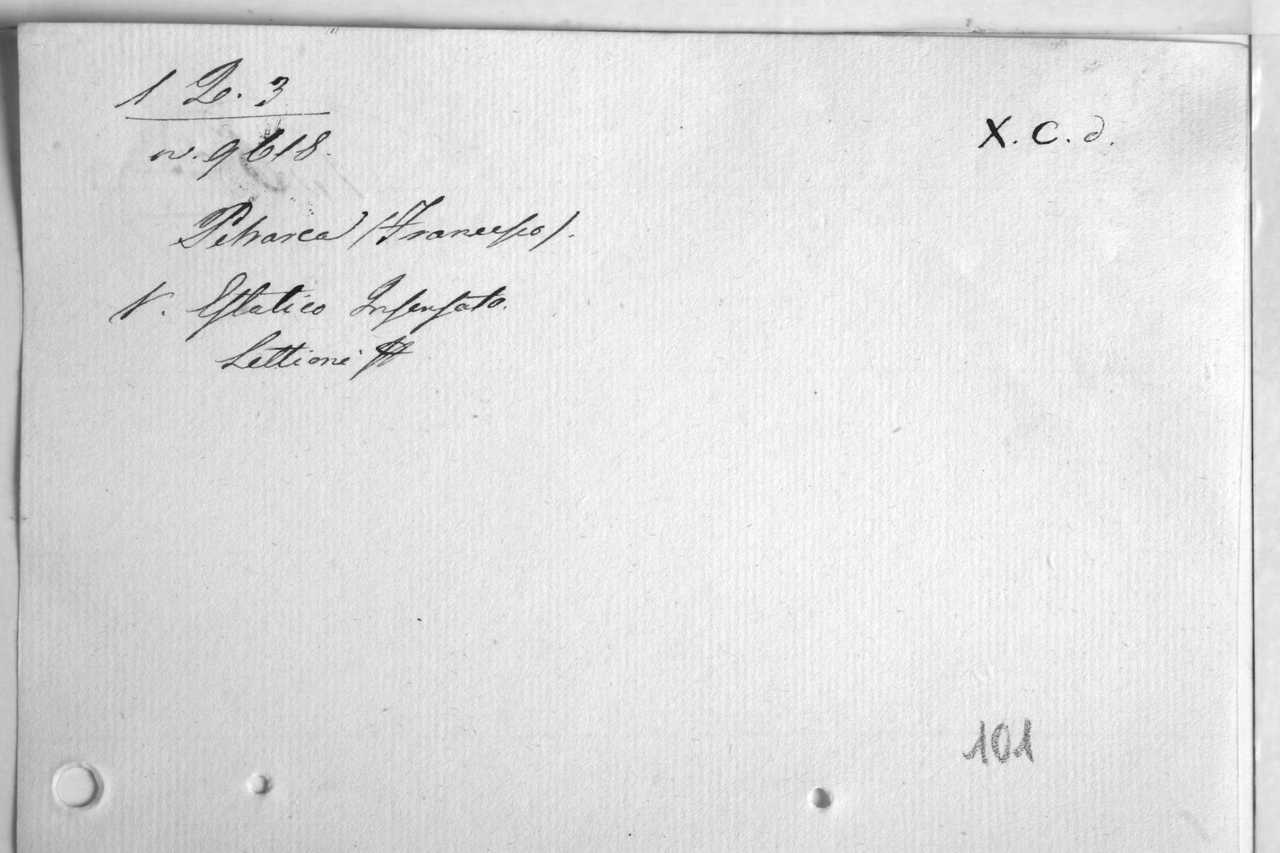 1 Q. 3
X. C. d.
n. 9618.
Petrarca (Francesco).
V. Estatico Insensato.
Lettioni
101